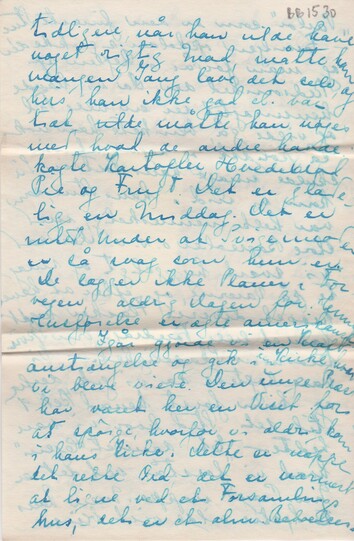 BB1530
tidligere når han vilde have
noget rigtig Mad, måtte han
mangen Gang lave det selv og
hvis han ikke gad el. var
træt vilde måtte han nøjes
med hvad de andre havde
kogte Kartofler Hvedebrød
Pie og Frugt. Det er
lig en Middag. Det er
intet Under at
er så svag som hun er.
De lægger ikke Planer i For
vejen aldrig Dagen for.
er ægte amerikansk
Igår gjorde vi en Kraft
anstrængelse og gik i Kirke,
vi blem viste. Den unge
har været her en Visit for
at spørge hvorfor vi aldrig kom
i hans Kirke. Dette er næppe
det rette Ord - det er nærmest
at ligne ved et Forsamlings
hus, det er et alm.